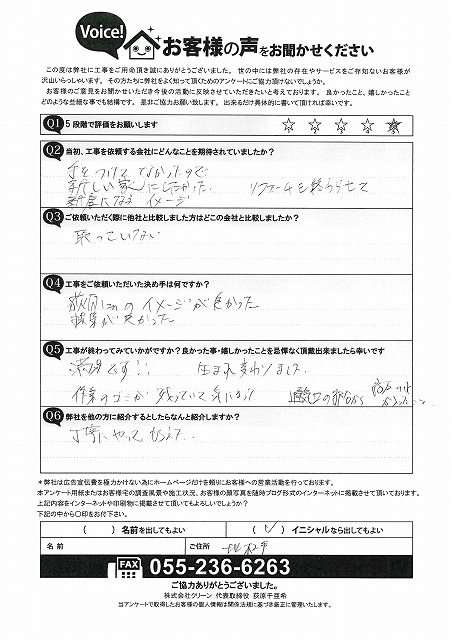 Voice!
お客様の声をお聞かせください
この度は弊社に工事をご用命頂き誠にありがとうございました。 世の中には弊社の存在やサービスをご存知ないお客様が
沢山いらっしゃいます。 その方たちに弊社をよく知って頂くためのアンケートにご協力頂けないでしょうか。
お客様のご意見をお聞かせいただき今後の活動に反映させていただきたいと考えております。 良かったこと、嬉しかったこと
どのような些細な事でも結構です。 是非ご協力お願い致します。 出来るだけ具体的に書いて頂ければ幸いです。
Q1 5段階で評価をお願いします ☆ ☆ ☆ ☆ ★
Q2 当初、工事を依頼する会社にどんなことを期待されていましたか?
手をつけてなかったので
新しい家にしたかった リフォームを終らせて
新居になる イメージ
Q3 ご依頼いただく際に他社と比較しました方はどこの会社と比較しましたか?
取っていない
Q4 工事をご依頼いただいた決め手は何ですか?
荻原さんのイメージが良かった
提案が良かった
Q5 工事が終わってみていかがですか?良かった事・嬉しかったことを忌憚なく頂戴出来ましたら幸いです
満足です!! 生まれ変わりました
作業のゴミが 残っていて 気になる
Q6 弊社を他の方に紹介するとしたらなんと紹介しますか?
丁寧にやってもらえた
*弊社は広告宣伝費を極力かけない為にホームページだけを頼りにお客様への営業活動を行っております。
本アンケート用紙またはお客様宅の調査風景や施工状況、お客様の顔写真を随時ブログ形式のインターネットに掲載させて頂いております。
上記内容をインターネットや印刷物に掲載させて頂いてもよろしいでしょうか?
下記の中から〇印をお付下さい。
( ) 名前を出してもよい ( ✓ ) イニシャルなら出してもよい
名 前 ご住所
FAX 055-236-6263
ご協力ありがとうございました。
株式会社クリーン 代表取締役 荻原千亜希
当アンケートで取得したお客様の個人情報は関係法規に基づき厳正に管理いたします。